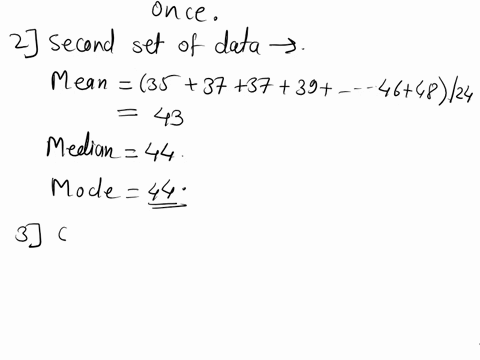 once.
2] Second set of data →.
Mean = (35 + 37 + 37 + 39 + ---- 46 + 48) / 24
= 43
Median = 44.
Mode = 44.
3] C